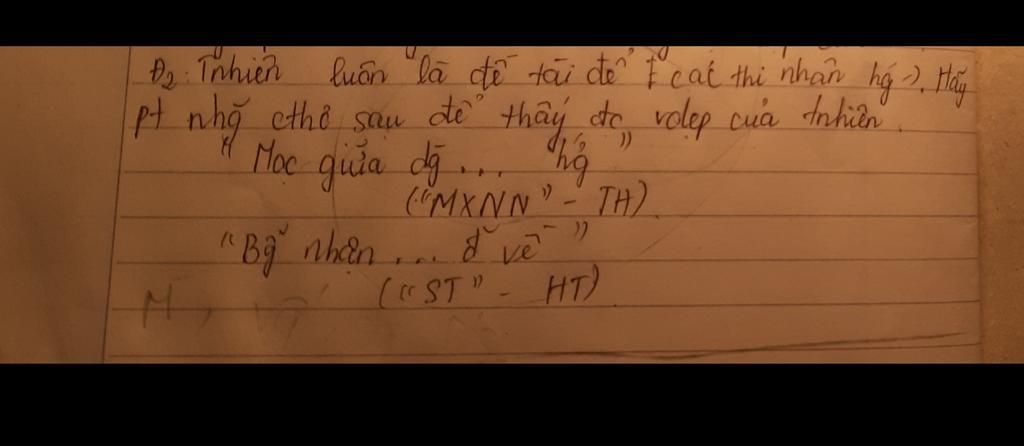 Đ2: Tnhiên luôn là đề tài để các thi nhân hg →. Hãy
pt nhg~ cthơ sau để thấy đc vđẹp của tnhiên.
"Mọc giữa dg ... hg"
("MXNN" - TH).
"Bg~ nhận ... đ~ về"
("ST" - HT).